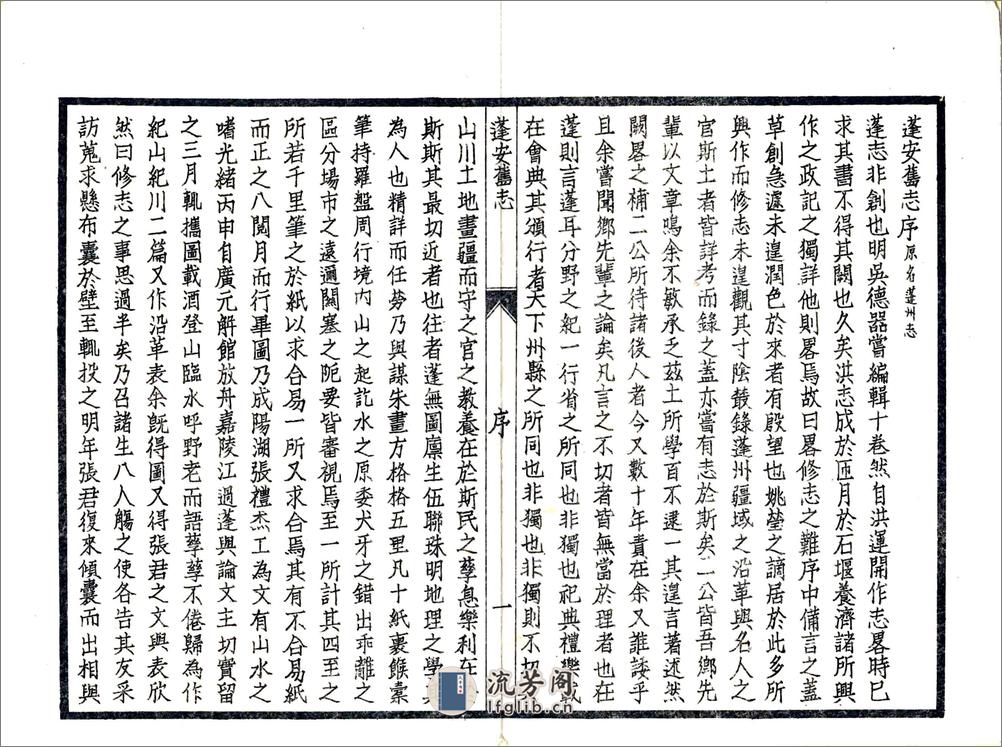 蓬安舊志序原名蓬州志
蓬志非創也明吳德器嘗編輯十卷然自洪運開作志畧時已
求其書不得其闕也久矣洪志成於匝月於石堰養濟諸所興
作之政記之獨詳他則畧焉故曰畧修志之難序中備言之蓋
草創急遽未遑潤色於來者有殷望也姚瑩之謫居於此多所
興作而修志未遑觀其寸陰叢錄蓬州疆域之沿革與名人之
官斯土者皆詳考而錄之蓋亦嘗有志於斯矣二公皆吾鄉先
輩以文章鳴余不敏承乏茲土所學百不逮一其遑言著述然
闕畧之補二公所待諸後人者今又數十年責在余又誰諉乎
且余嘗聞鄉先輩之論矣凡言之不切者皆無當於理者也在
蓬則言蓬耳分野之紀一行省之所同也非獨也祀典禮樂載
在會典其頒行者天下州縣之所同也非獨也非獨則不切
蓬安舊志
序
一
山川土地畫疆而守之官之教養在於斯民之孳息樂利在
斯斯其最切近者也往者蓬無圖廩生伍聯珠明地理之學其
為人也精詳而任勞乃與謀朱畫方格格五里凡十紙裹餱橐
筆持羅盤周行境內山之起訖水之原委犬牙之錯出乖離之
區分場市之遠邇關塞之阨要皆審視焉至一所計其四至之
所若千里筆之於紙以求合易一所又求合焉其有不合易紙
而正之八閱月而行畢圖乃成陽湖張禮杰工為文有山水之
嗜光緒丙申自廣元解館放舟嘉陵江過蓬與論文主切實留
之三月輒攜圖載酒登山臨水呼野老而語孳孳不倦歸為作
紀山紀川二篇又作沿革表余旣得圖又得張君之文與表欣
然曰修志之事思過半矣乃召諸生八人觴之使各告其友采
訪蒐求懸布囊於壁至輒投之明年張君復來傾囊而出相與
流芳阁
lfglib.cn